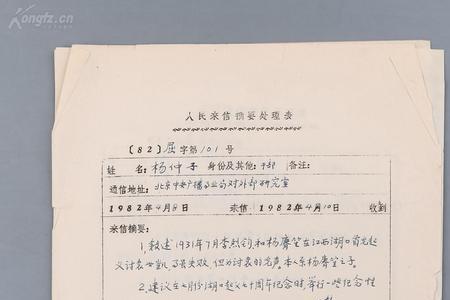 Kongfz.cn
人民来信摘要处理表
(82)屈字第101号
姓名:杨仲子 身份及其他:干部 备注:
通信地址:北京中央广播事业局对外部研究室
1982年4月8日 来信 1982年4月10日 收到
来信摘要:
1,叙述1931年7月李烈钧和杨赓笙在江西湖口首先起
义讨袁世凯,乃虽失败,但为讨袁的先声。本人系杨赓笙之子。
2,建议在七月份湖口起义七十周年纪念时,举行一些纪念性